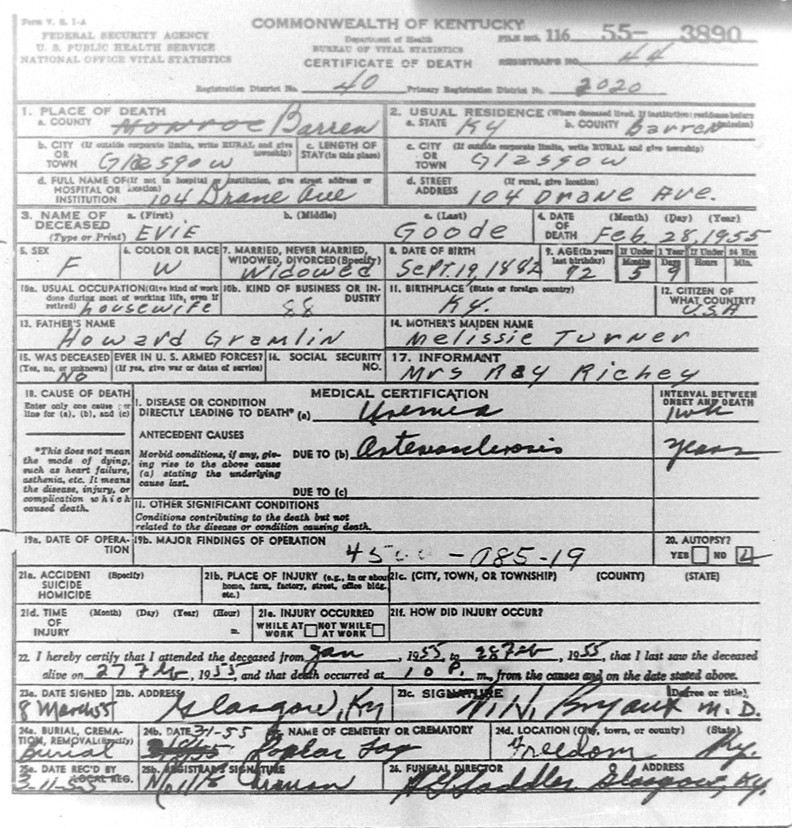 Form V. S. 1-A
COMMONWEALTH OF KENTUCKY
FEDERAL SECURITY AGENCY
Department of Health
FILE NO. 116 55- 3890
U. S. PUBLIC HEALTH SERVICE
BUREAU OF VITAL STATISTICS
NATIONAL OFFICE VITAL STATISTICS
CERTIFICATE OF DEATH
REGISTRAR'S NO. 44
Registration District No. 40 Primary Registration District No. 2020
1. PLACE OF DEATH
a. COUNTY Monroe Barren
2. USUAL RESIDENCE (Where deceased lived. If institution: residence before admission)
a. STATE Ky b. COUNTY Barren
b. CITY (If outside corporate limits, write RURAL and give township) OR TOWN Glasgow
c. LENGTH OF STAY (in this place)
c. CITY (If outside corporate limits, write RURAL and give township) OR TOWN Glasgow
d. FULL NAME OF (If not in hospital or institution, give street address or location) HOSPITAL OR INSTITUTION 104 Drane Ave
d. STREET ADDRESS (If rural, give location) 104 Drane Ave.
3. NAME OF DECEASED (Type or Print) a. (First) b. (Middle) c. (Last)
EVIE Goode
4. DATE OF DEATH (Month) (Day) (Year)
Feb. 28, 1955
5. SEX F
6. COLOR OR RACE W
7. MARRIED, NEVER MARRIED, WIDOWED, DIVORCED (Specify) Widowed
8. DATE OF BIRTH Sept. 19, 1882
9. AGE (In years last birthday) 72 If Under 1 Year Months 5 Days 9 If Under 24 Hrs Hours Min.
10a. USUAL OCCUPATION (Give kind of work done during most of working life, even if retired) housewife
10b. KIND OF BUSINESS OR INDUSTRY 88
11. BIRTHPLACE (State or foreign country) Ky.
12. CITIZEN OF WHAT COUNTRY? USA
13. FATHER'S NAME Howard Gramlin
14. MOTHER'S MAIDEN NAME Melissie Turner
15. WAS DECEASED EVER IN U. S. ARMED FORCES? (Yes, no, or unknown) (If yes, give war or dates of service) No
16. SOCIAL SECURITY NO.
17. INFORMANT Mrs Ray Richey
18. CAUSE OF DEATH
Enter only one cause per line for (a), (b), and (c)
MEDICAL CERTIFICATION
INTERVAL BETWEEN ONSET AND DEATH
I. DISEASE OR CONDITION DIRECTLY LEADING TO DEATH* (a) Uremia 1 wk
*This does not mean the mode of dying, such as heart failure, asthenia, etc. It means the disease, injury, or complication which caused death.
ANTECEDENT CAUSES
Morbid conditions, if any, giving rise to the above cause (a) stating the underlying cause last.
DUE TO (b) Arteriosclerosis years
DUE TO (c)
II. OTHER SIGNIFICANT CONDITIONS
Conditions contributing to the death but not related to the disease or condition causing death.
19a. DATE OF OPERATION
19b. MAJOR FINDINGS OF OPERATION
-085-19
20. AUTOPSY? YES NO
21a. ACCIDENT SUICIDE HOMICIDE (Specify)
21b. PLACE OF INJURY (e.g., in or about home, farm, factory, street, office bldg. etc.)
21c. (CITY, TOWN, OR TOWNSHIP) (COUNTY) (STATE)
21d. TIME OF INJURY (Month) (Day) (Year) (Hour) m.
21e. INJURY OCCURRED WHILE AT WORK NOT WHILE AT WORK
21f. HOW DID INJURY OCCUR?
22. I hereby certify that I attended the deceased from Jan, 1955 to 28 Feb, 1955, that I last saw the deceased
alive on 27 Feb, 1955 and that death occurred at 10 P. m., from the causes and on the date stated above.
23a. DATE SIGNED 8 March 55
23b. ADDRESS Glasgow, Ky
23c. SIGNATURE Bryant M. D. (Degree or title)
24a. BURIAL, CREMATION, REMOVAL (Specify) Burial
24b. DATE 3-1-55
24c. NAME OF CEMETERY OR CREMATORY Poplar Log
24d. LOCATION (City, town, or county) (State) Freedom Ky.
25a. DATE REC'D BY LOCAL REG. 3-11-55
25b. REGISTRAR'S SIGNATURE
26. FUNERAL DIRECTOR ADDRESS
Saddler Glasgow, Ky.